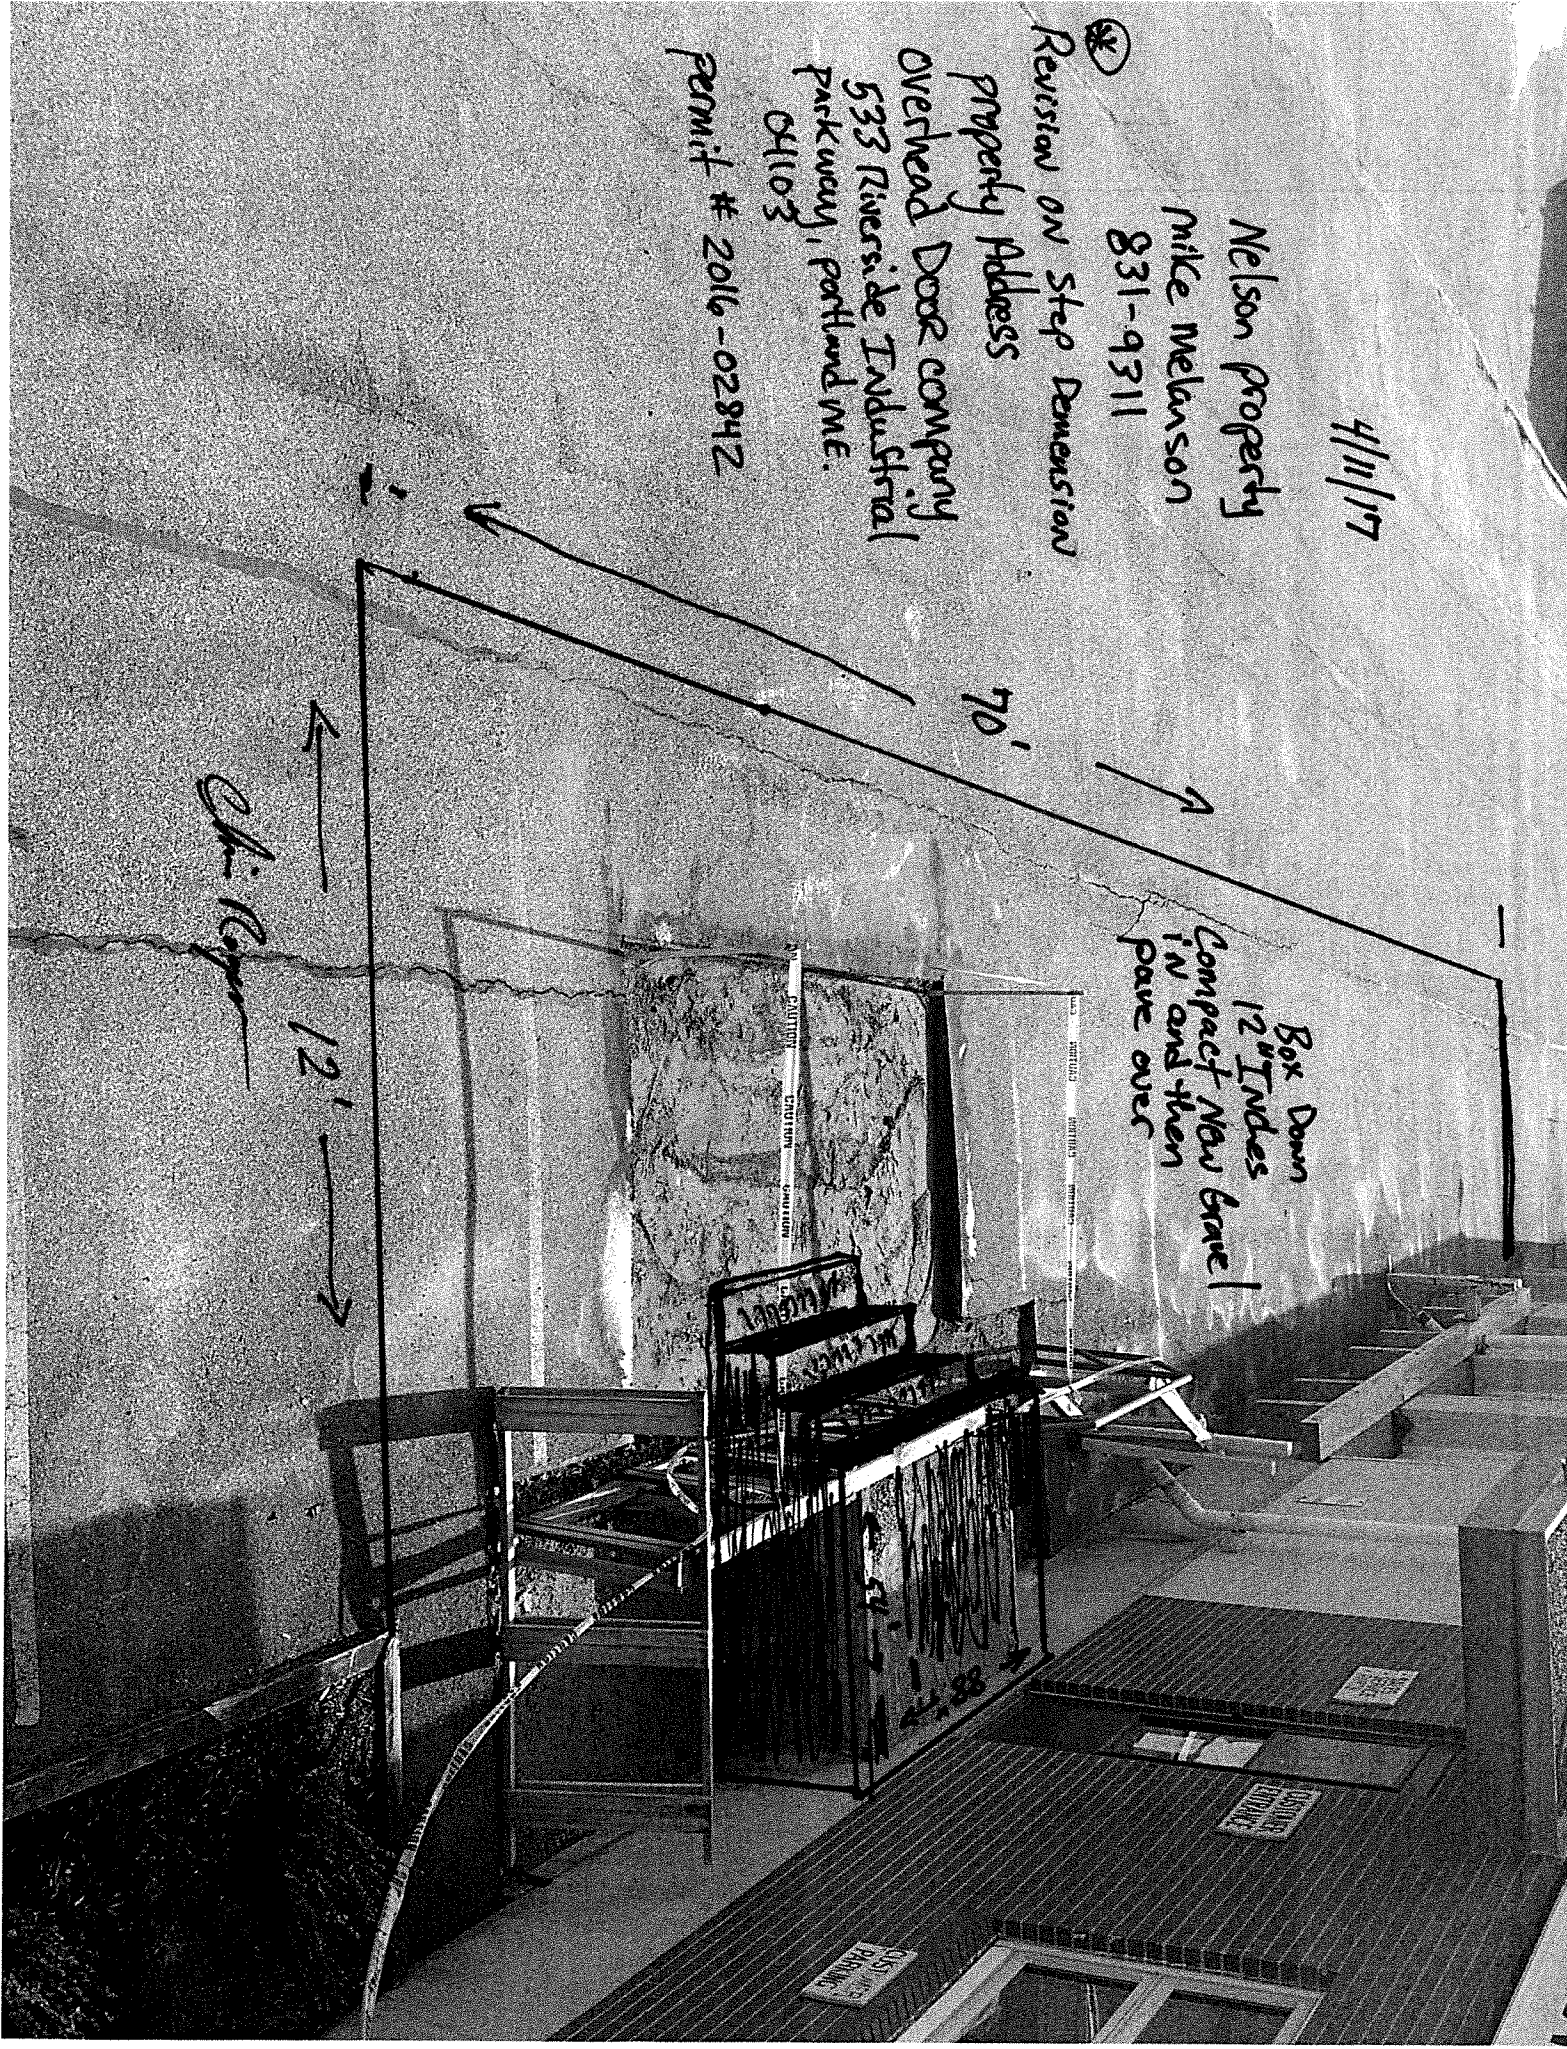 4/11/17
Nelson property
Mike Melanson
831-9311
Revision on Step Demension
property Address
Overhead Door company
533 Riverside Industrial
parkway, portland ME.
04103
permit # 2016-02842
70'
Box Down
12" Inches
Compact New Gravel
in and then
pave over
12'
54"
88"
CAUTION CAUTION CAUTION
CUSTOMER
ENTRANCE
CUSTOMER
PARKING